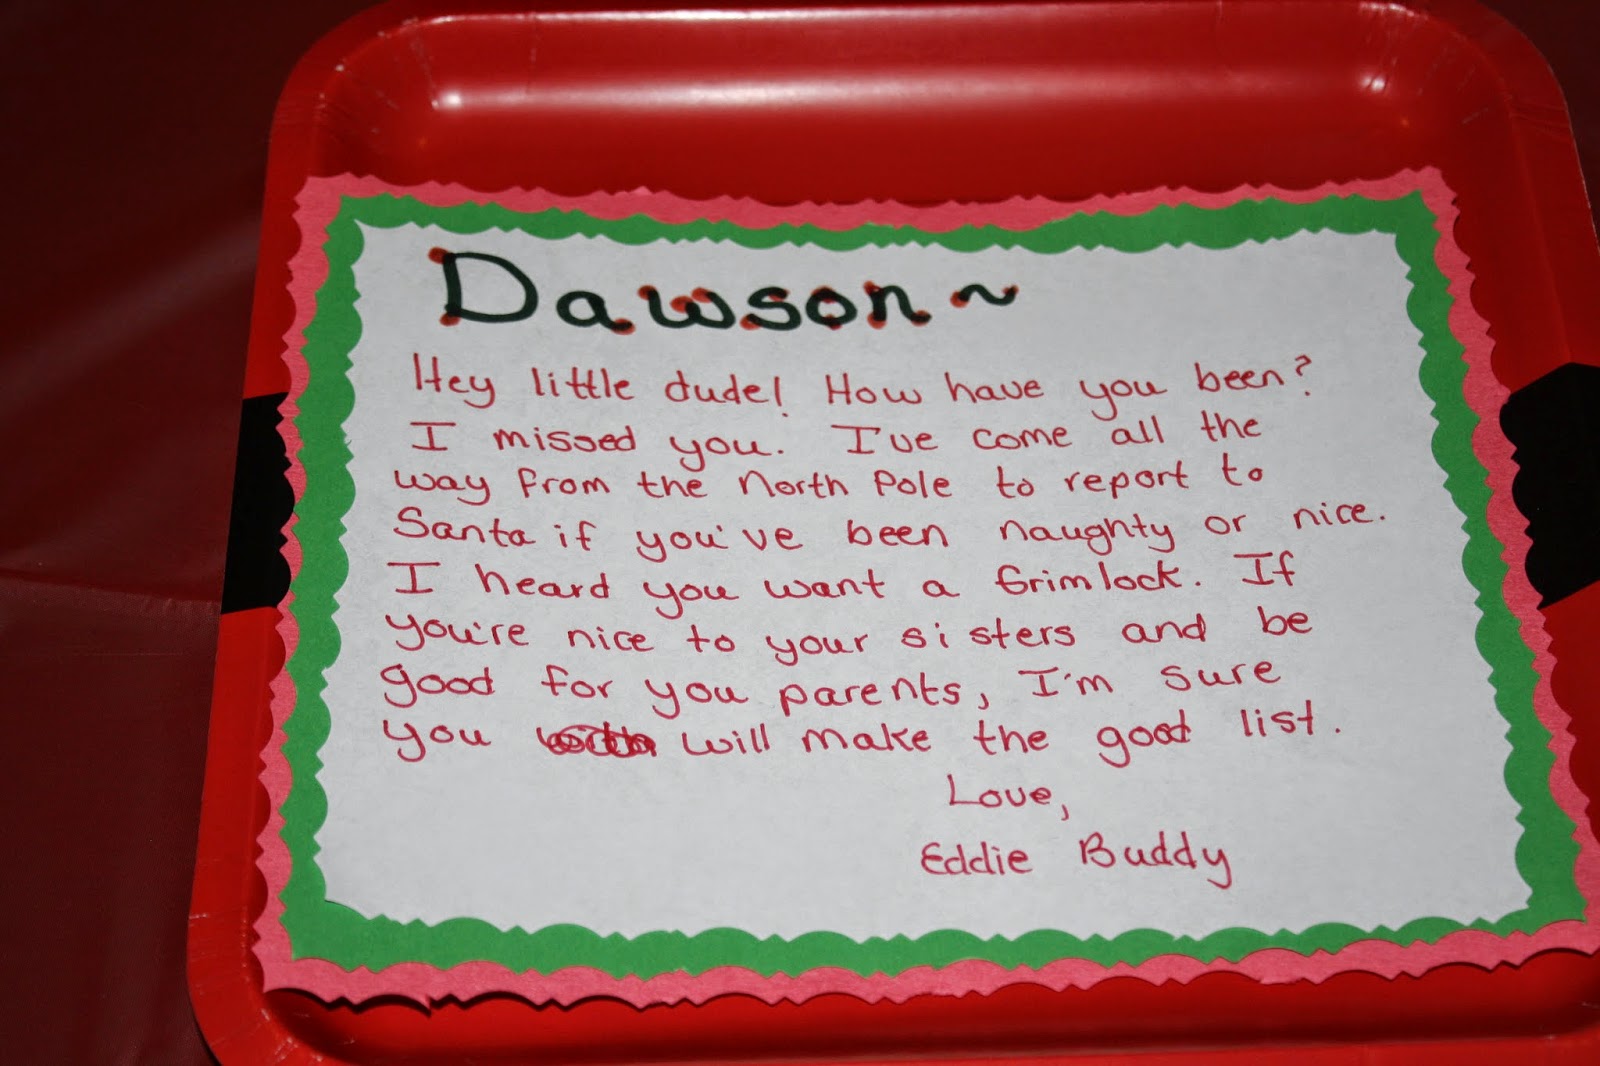 Dawson ~
Hey little dude! How have you been?
I missed you. I've come all the
way from the North Pole to report to
Santa if you've been naughty or nice.
I heard you want a Grimlock. If
you're nice to your sisters and be
good for you parents, I'm sure
you will make the good list.
Love,
Eddie Buddy